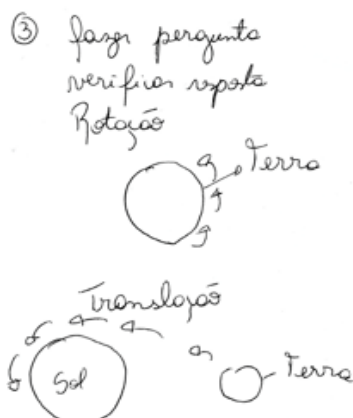 ③ fazer pergunta
verificar resposta
Rotação
Terra
Translação
Sol
Terra